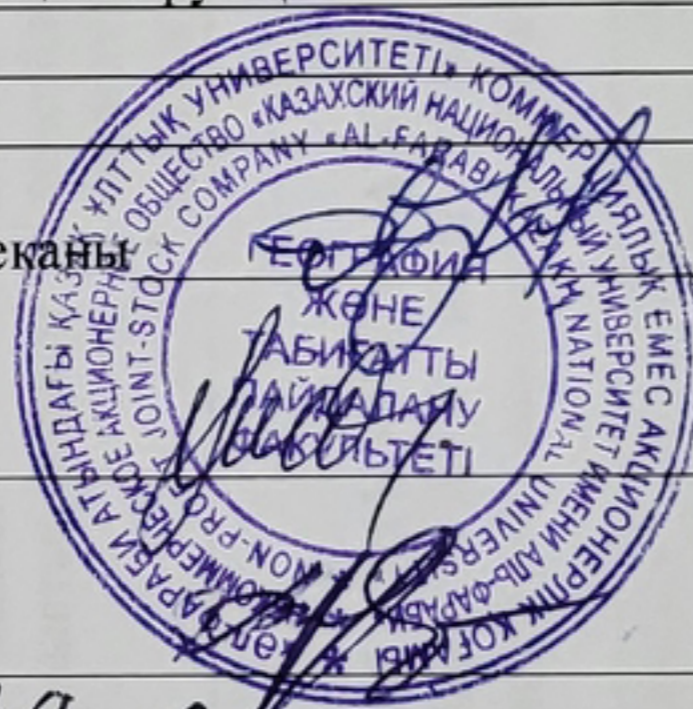 еканы
«ӘЛ-ФАРАБИ АТЫНДАҒЫ ҚАЗАҚ ҰЛТТЫҚ УНИВЕРСИТЕТІ» КОММЕРЦИЯЛЫҚ ЕМЕС АКЦИОНЕРЛІК ҚОҒАМЫ
НЕКОММЕРЧЕСКОЕ АКЦИОНЕРНОЕ ОБЩЕСТВО «КАЗАХСКИЙ НАЦИОНАЛЬНЫЙ УНИВЕРСИТЕТ ИМЕНИ АЛЬ-ФАРАБИ»
NON-PROFIT JOINT-STOCK COMPANY «AL-FARABI KAZAKH NATIONAL UNIVERSITY»
ГЕОГРАФИЯ
ЖӘНЕ
ТАБИҒАТТЫ
ПАЙДАЛАНУ
ФАКУЛЬТЕТІ